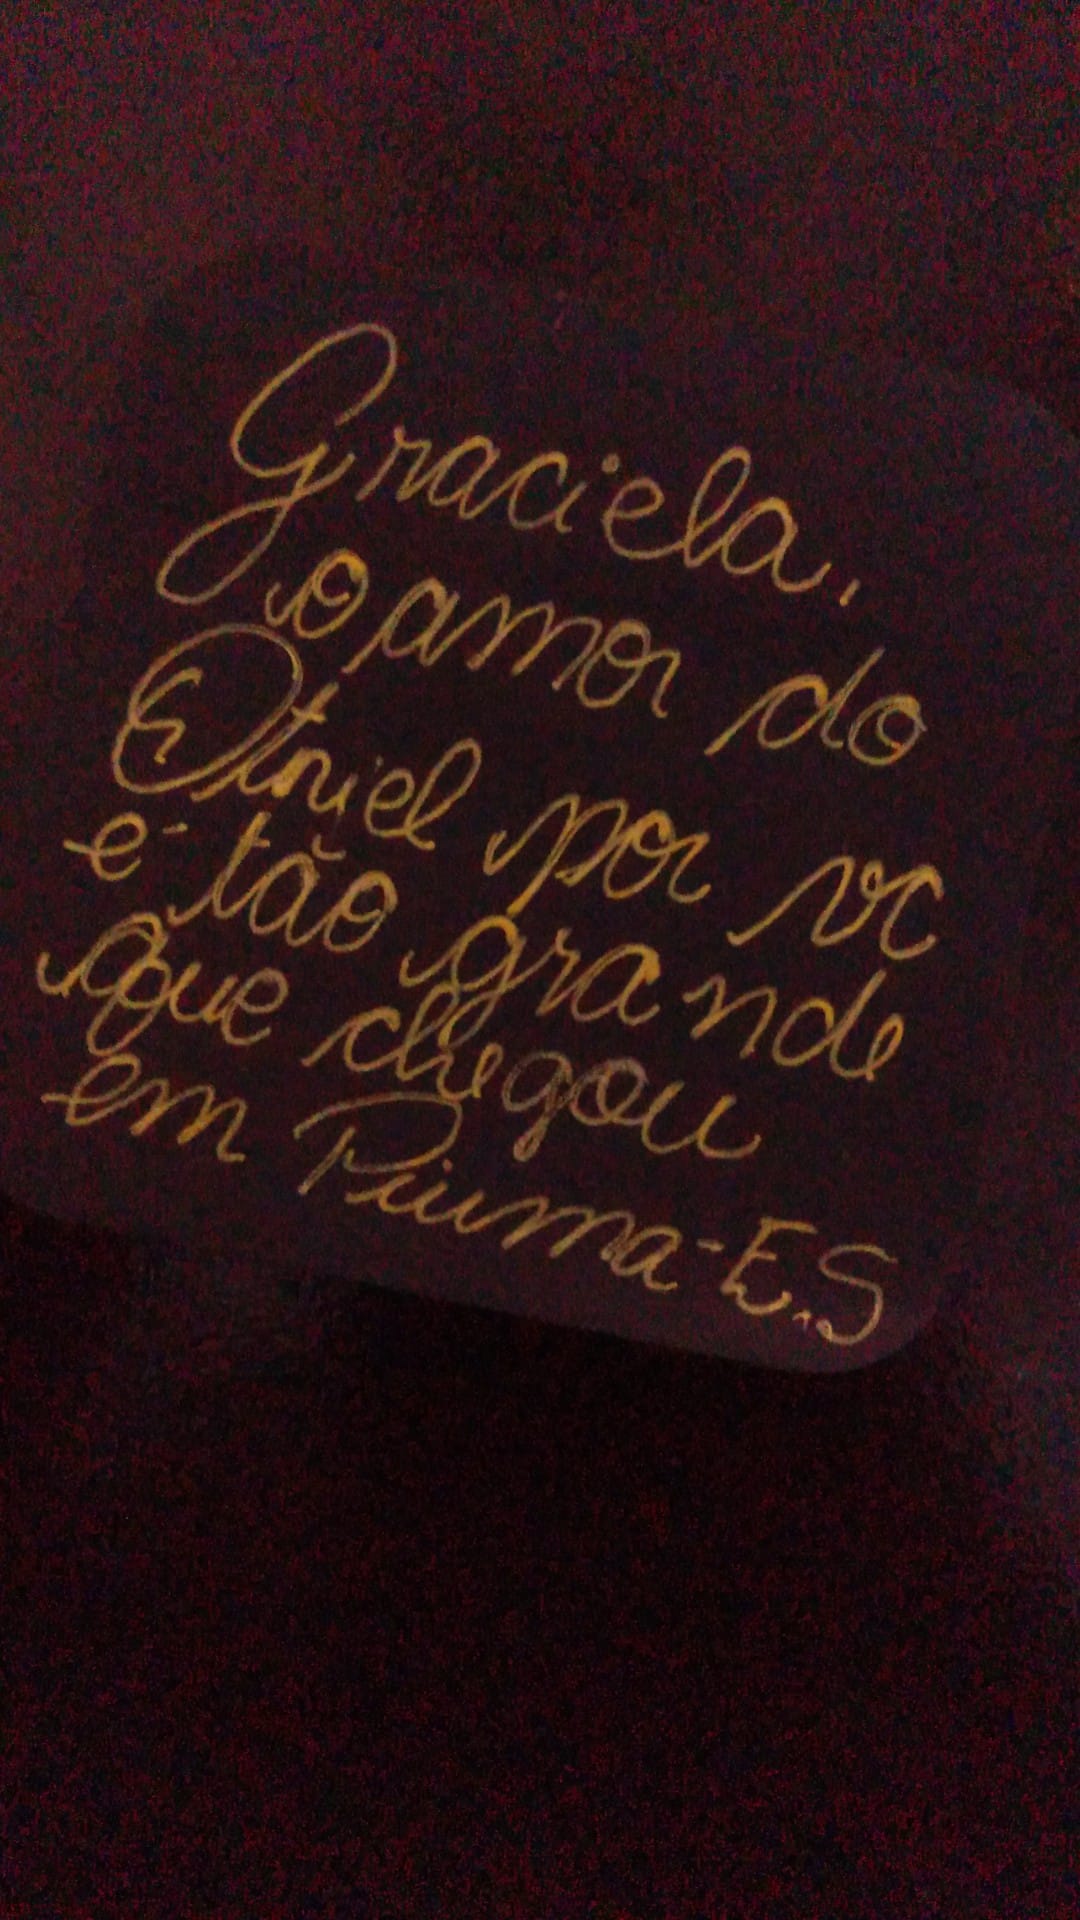 Graciela,
o amor do
Otniel por vc
é tão grande
que chegou
em Piuma-E.S